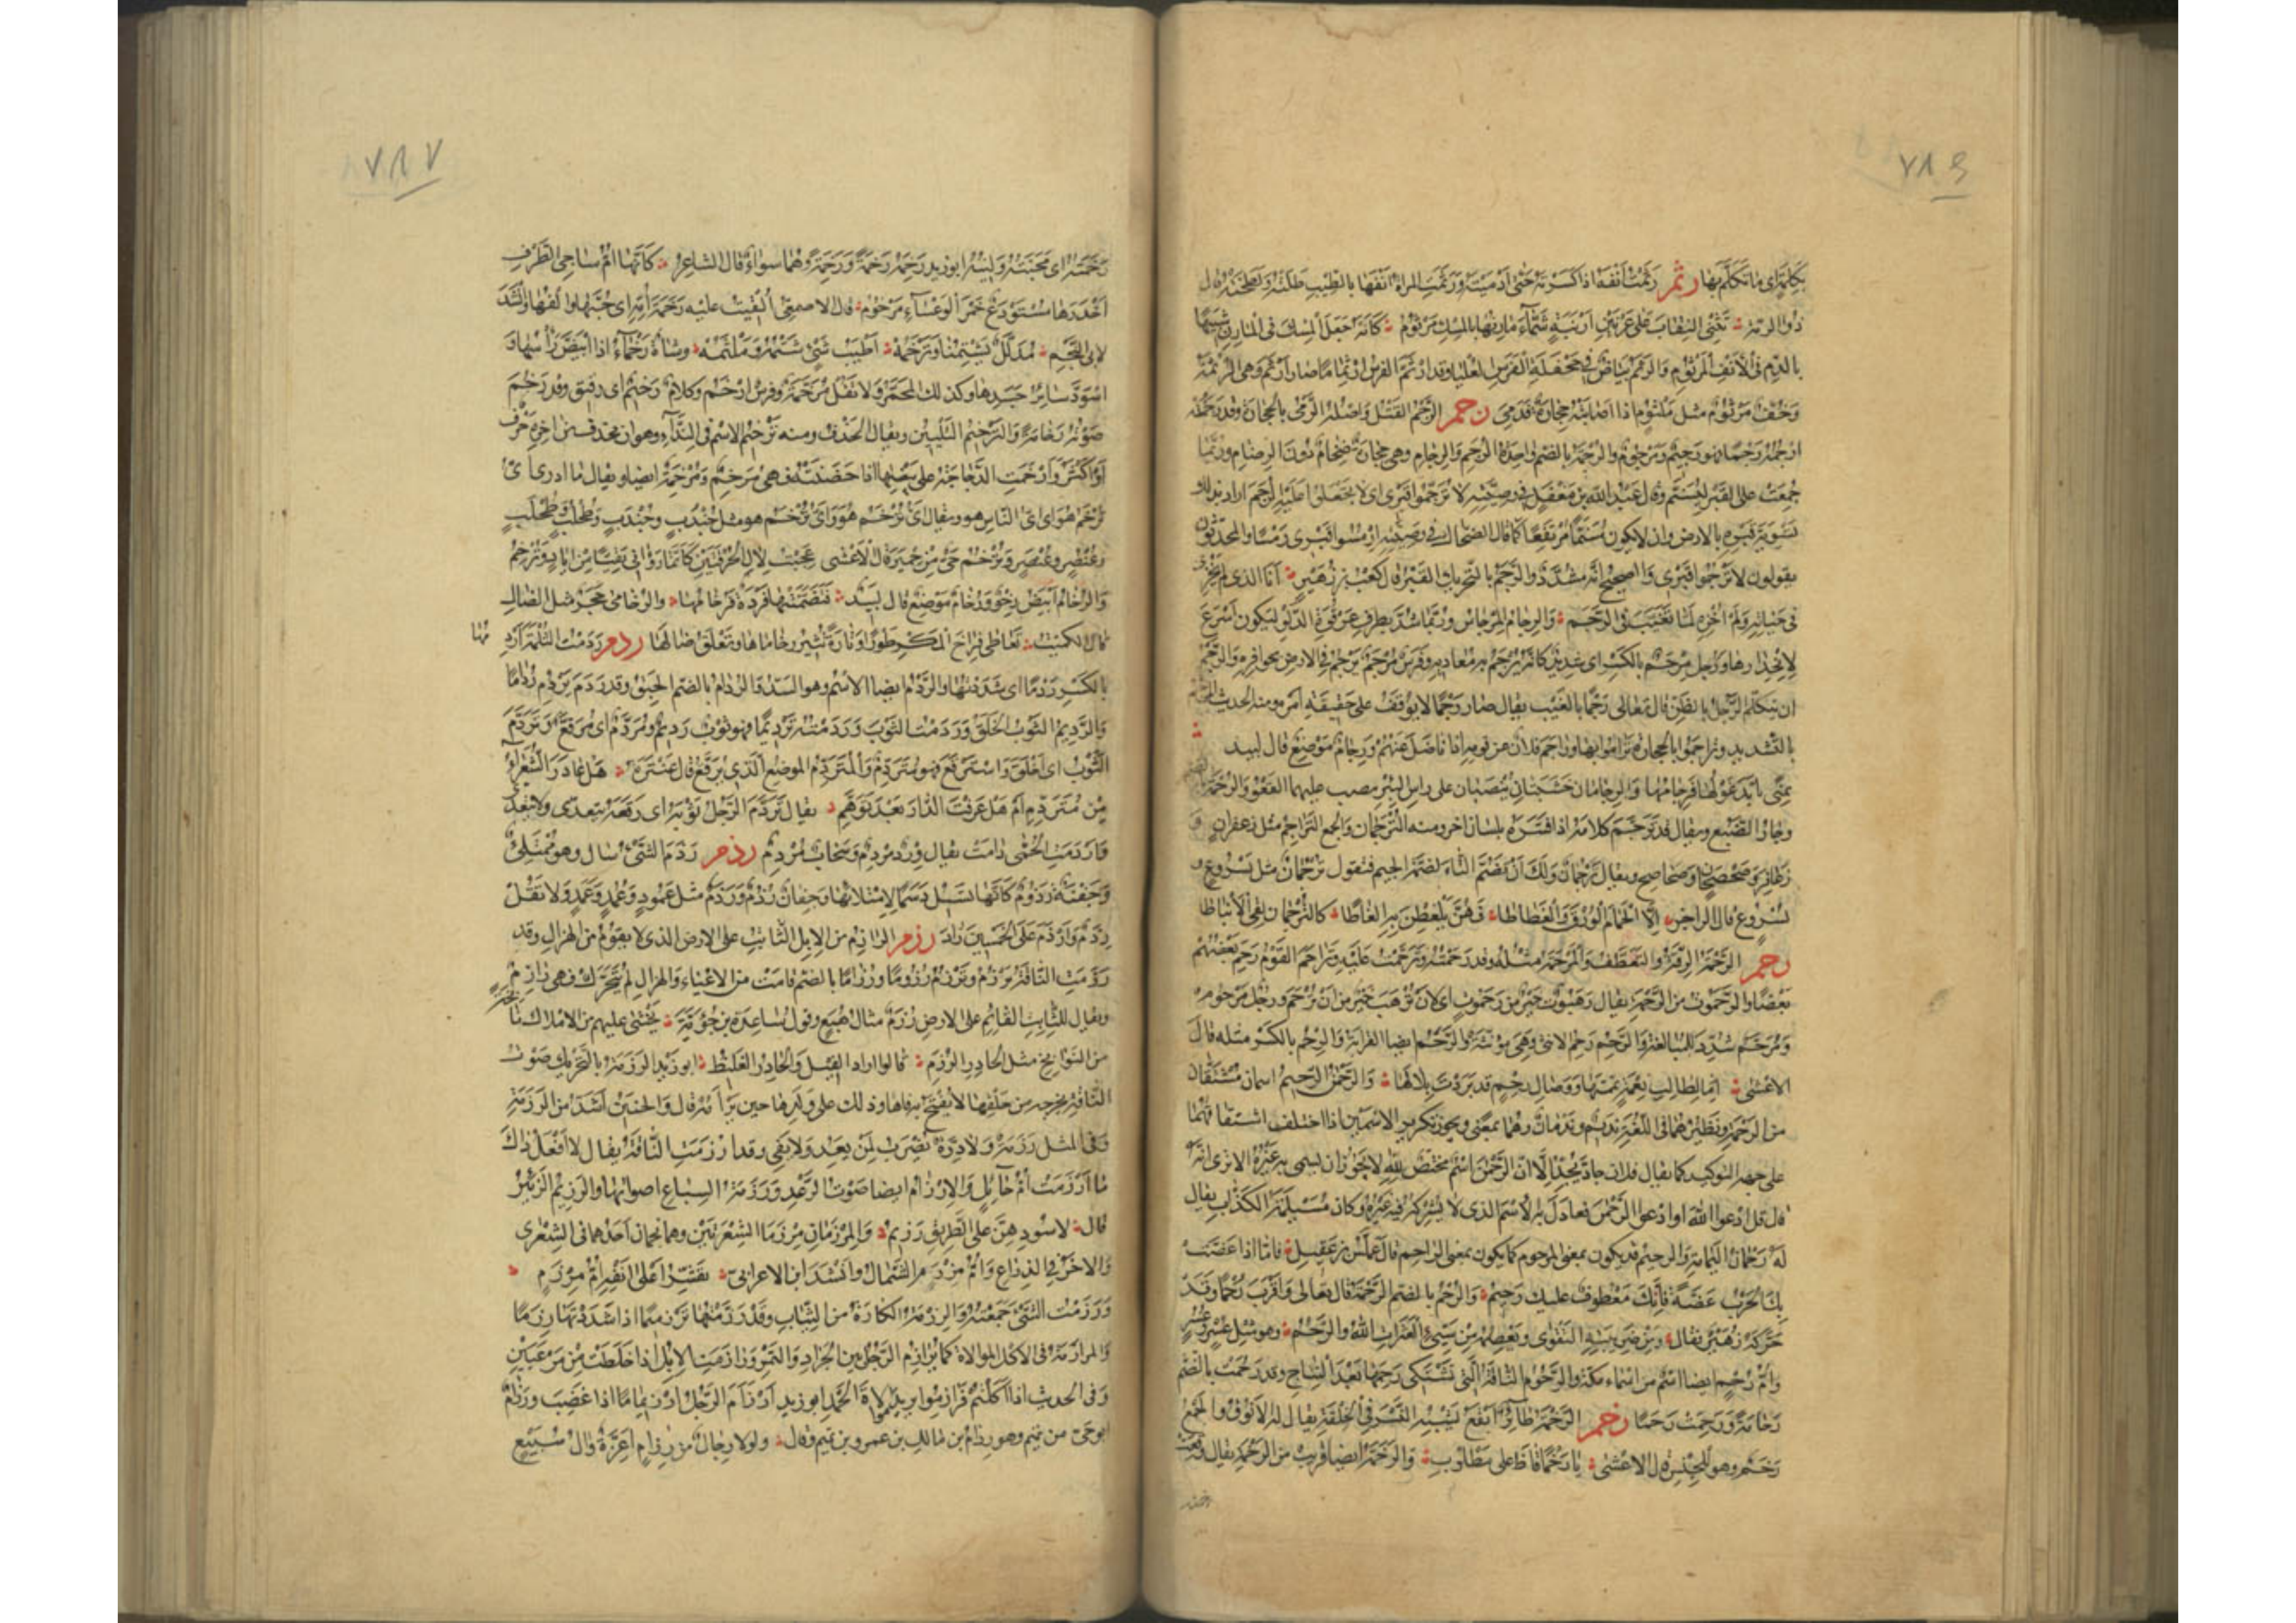 ٧٨٦
بكلمة اى ما تكلم بها رثم رثمت انفه اذا كسرته حتى ادميته ورثمت المراة انفها بالطيب طلته ولطخته قال
ذو الرمة تثنى النقاب على عرنين ارنبة شماء مارنها بالمسك مرثوم كانه جعل المسك فى المارن شبيها
بالدم فى الانف المرثوم والرثم بياض فى جحفلة الفرس العليا وقد ارثم الفرس ارثماما صار ارثم وهى الرثمة
وخف مرثوم مثل ملثوم اذا اصابته حجارة فدمى رجم الرجم القتل واصله الرمى بالحجارة وقد رجمته
ارجمه رجما فهو رجيم ومرجوم والرجمة بالضم واحدة الرجم والرجام وهى حجارة ضخام دون الرضام وربما
جمعت على القبر ليسنم وقال عبد الله بن مغفل فى وصيته لا ترجموا قبرى اى لا تجعلوا عليه الرجم اراد بذلك
تسوية قبره بالارض وان لا يكون مسنما مرتفعا كما قال الضحاك فى وصيته ارمسوا قبرى رمسا والمحدثون
يقولون لا ترجموا قبرى والصحيح انه مشدد والرجم بالتحريك القبر قال كعب بن زهير انا الذى لم يخزنى
فى حياته ولم اخزه لما تغيب فى الرجم والرجام المرجاس وربما شد بطرف عرقوة الدلو ليكون اسرع
لانحدارها ورجل مرجم بالكسر اى شديد كانه يرجم به معاديه وفرس مرجم يرجم فى الارض بحوافره والرجم
ان يتكلم الرجل بالظن قال تعالى رجما بالغيب يقال صار رجما لا يوقف على حقيقة امره ومنه الحديث المرجم
بالتشديد وتراجموا بالحجارة تراموا بها وراجم فلان عن قومه اذا ناضل عنهم ورجام موضع قال لبيد
بمنى تابد غولها فرجامها والرجامان خشبتان ينصبان على راس البئر ينصب عليهما القعو والرجمة
وجار الضبع ويقال قد ترجم كلامه اذا فسره بلسان اخر ومنه الترجمان والجمع التراجم مثل زعفران و
زعافر وصحصحان وصحاصح ويقال ترجمان ولك ان تضم التاء لضمة الجيم فتقول ترجمان مثل يسروع و
يسروع قال الراجز الا الحمام الورق والغطاطا فهن يلغطن به الغاطا كالترجمان لقى الانباطا
رحم الرحمة الرقة والتعطف والمرحمة مثله وقد رحمته وترحمت عليه وتراحم القوم رحم بعضهم
بعضا والرحموت من الرحمة يقال رهبوت خير من رحموت اى لان ترهب خير من ان ترحم ورجل مرحوم
ومرحم شدد للمبالغة والرحم رحم الانثى وهى مؤنثة والرحم ايضا القرابة والرحم بالكسر مثله قال
الاعشى اما لطالب نعمة يممتها ووصال رحم قد بردت بلالها والرحمن الرحيم اسمان مشتقان
من الرحمة ونظيرهما فى اللغة نديم وندمان وهما بمعنى ويجوز تكرير الاسمين اذا اختلف اشتقاقهما
على جهة التوكيد كما يقال فلان جاد مجد الا ان الرحمن اسم مختص لله لا يجوز ان يسمى به غيره الا ترى انه
قال قل ادعوا الله او ادعوا الرحمن فعادل به الاسم الذى لا يشركه فيه غيره وكان مسيلمة الكذاب يقال
له رحمان اليمامة والرحيم قد يكون بمعنى المرحوم كما يكون بمعنى الراحم قال عملس بن عقيل فاما اذا عضت
بك الحرب عضة فانك معطوف عليك رحيم والرحم بالضم الرحمة قال تعالى واقرب رحما وقد
حركه زهير فقال ومن ضريبته التقوى ويعصمه من سيئ العثرات الله والرحم وهو مثل عسر وعسر
وام رحم ايضا اسم من اسماء مكة والرحوم الناقة التى تشتكى رحمها بعد النتاج وقد رحمت بالضم
رحامة ورحمت رحما رخم الرخمة طائر ابقع يشبه النسر فى الخلقة يقال له الانوق والجمع
رخم وهو للجنس قال الاعشى يا رخما قاظ على مطلوب والرخمة ايضا قريب من الرحمة يقال وقعت
٧٨٧
رخمته اى محبته ولينه ابو زيد رخمه رخمة ورحمه رحمة وهما سواء قال الشاعر كانها ام ساجى الطرف
اخدرها مستودع خمر الوعساء مرخوم قال الاصمعى القيت عليه رخمة امه اى حبها والفها وانشد
لابى النجم مدلل يشتمنا ونرخمه اطيب شئ نشمه وملثمه وشاة رخماء اذا ابيض راسها و
اسود سائر جسدها وكذلك المخمرة ولا تقل مرخمة وفرس ارخم وكلام رخيم اى رقيق وقد رخم
صوته رخامة والترخيم التليين ويقال الحذف ومنه ترخيم الاسم فى النداء وهو ان يحذف من اخره حرف
او اكثر وارخمت الدجاجة على بيضها اذا حضنته فهى مرخم ومرخمة ايضا ويقال ما ادرى اى
ترخم هو اى اى الناس هو ويقال اى ترخم هو واى ترخم هو مثل جندب وجندب وطحلب وطحلب
وعنصر وعنصر وترخم حى من حمير قال الاعشى عجبت لال الحرقتين كانما راونى نفيا من اياد وترخم
والرخام ابيض رخو ورخام موضع قال لبيد فتضمنتها فردة فرخامها والرخامى شجر مثل الضال
قال الكميت تعاطى فراخ المكر طورا وتارة تثير رخاماها وتعلق ضالها ردم ردمت الثلمة اردمها
بالكسر ردما اى سددتها والردم ايضا الاسم وهو السد والردام بالضم الحبق وقد ردم يردم رداما
والرديم الثوب الخلق وردمت الثوب وردمته ترديما فهو ثوب رديم ومردم اى مرقع وتردم
الثوب اى اخلق واسترقع فهو متردم والمتردم الموضع الذى يرقع قال عنترة هل غادر الشعراء
من متردم ام هل عرفت الدار بعد توهم يقال تردم الرجل ثوبه اى رقعه يتعدى ولا يتعدى
واردمت الحمى دامت يقال ورد مردم وسحاب مردم رذم رذم الشئ سال وهو ممتلئ
وجفنة رذوم كانها تسيل دسما لامتلائها وجفان رذم ورذم مثل عمود وعمد وعمد ولا تقل
رذم وارذم على الخمسين زاد رزم الرازم من الابل الثابت على الارض الذى لا يقوم من الهزال وقد
رزمت الناقة ترزم وترزم رزوما ورزاما بالضم قامت من الاعياء والهزال لم تتحرك فهى رازم
ويقال للثابت القائم على الارض رزم مثال هبع وقول ساعدة بن جؤية يخشى عليهم من الاملاك نابخة
من النوابخ مثل الحادر الرزم قالوا اراد الفيل والحادر الغليظ ابو زيد الرزمة بالتحريك صوت
الناقة تخرجه من حلقها لا تفتح به فاها وذلك على ولدها حين ترأمه قال والحنين اشد من الرزمة
وفى المثل رزمة ولا درة يضرب لمن يعد ولا يفى وقد ارزمت الناقة يقال لا افعل ذلك
ما ارزمت ام حائل والارزام ايضا صوت الرعد ورزمة السباع اصواتها والرزيم الزئير
قال لاسودهن على الطريق رزيم والمرزمان مرزما الشعريين وهما نجمان احدهما فى الشعرى
والاخر فى الذراع وام مرزم الشمال وانشد ابن الاعرابى يقشر اعلى انفه ام مرزم
ورزمت الشئ جمعته والرزمة الكارة من الثياب وقد رزمتها ترزيما اذا شددتها رزما
والمرازمة فى الاكل الموالاة كما يرازم الرجل بين الجراد والتمر ورازمت الابل اذا خلطت بين مرعيين
وفى الحديث اذا اكلتم فرازموا يريد موالاة الحمد ابو زيد ارزام الرجل ارزيماما اذا غضب ورزام
ابو حى من تميم وهو رزام بن مالك بن عمرو بن تميم وقال ولولا رجال من رزام اعزة وال سبيع